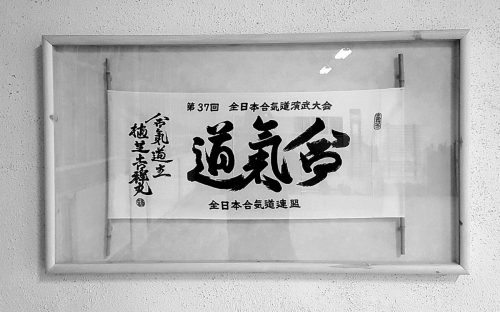 第37回 全日本合気道演武大会
合氣道
全日本合気道連盟
合氣道主
植芝吉祥丸